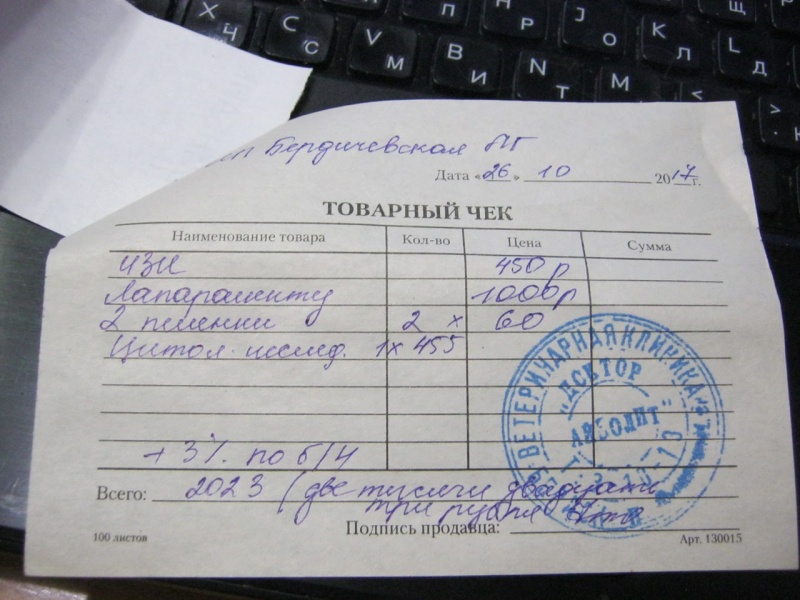 Х Ч C С V М B И N Т М < H Р J О K Л L Д П Щ
Бердичевская
Дата «26» 10 2017г.
ТОВАРНЫЙ ЧЕК
Наименование товара Кол-во Цена Сумма
УЗИ 450 р
1000 р
2 пеленки 2 х 60
Цитол. исслед. 1х 455
+ 3% по б/н
Всего: 2023 (две тысячи двадцать
три рубля
Подпись продавца:
100 листов Арт. 130015
ВЕТЕРИНАРНАЯ КЛИНИКА
"ДОКТОР
АЙБОЛИТ"